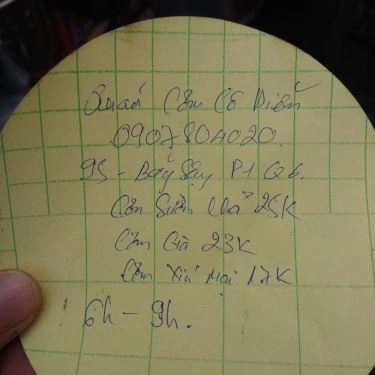 Quán Cơm Cô Diễn
0907804020.
95 - Bãi Sậy P1 Q6.
Cơm Sườn Chả 25K
Cơm Gà 23K
Cơm Xíu Mại 17K
6h - 9h.